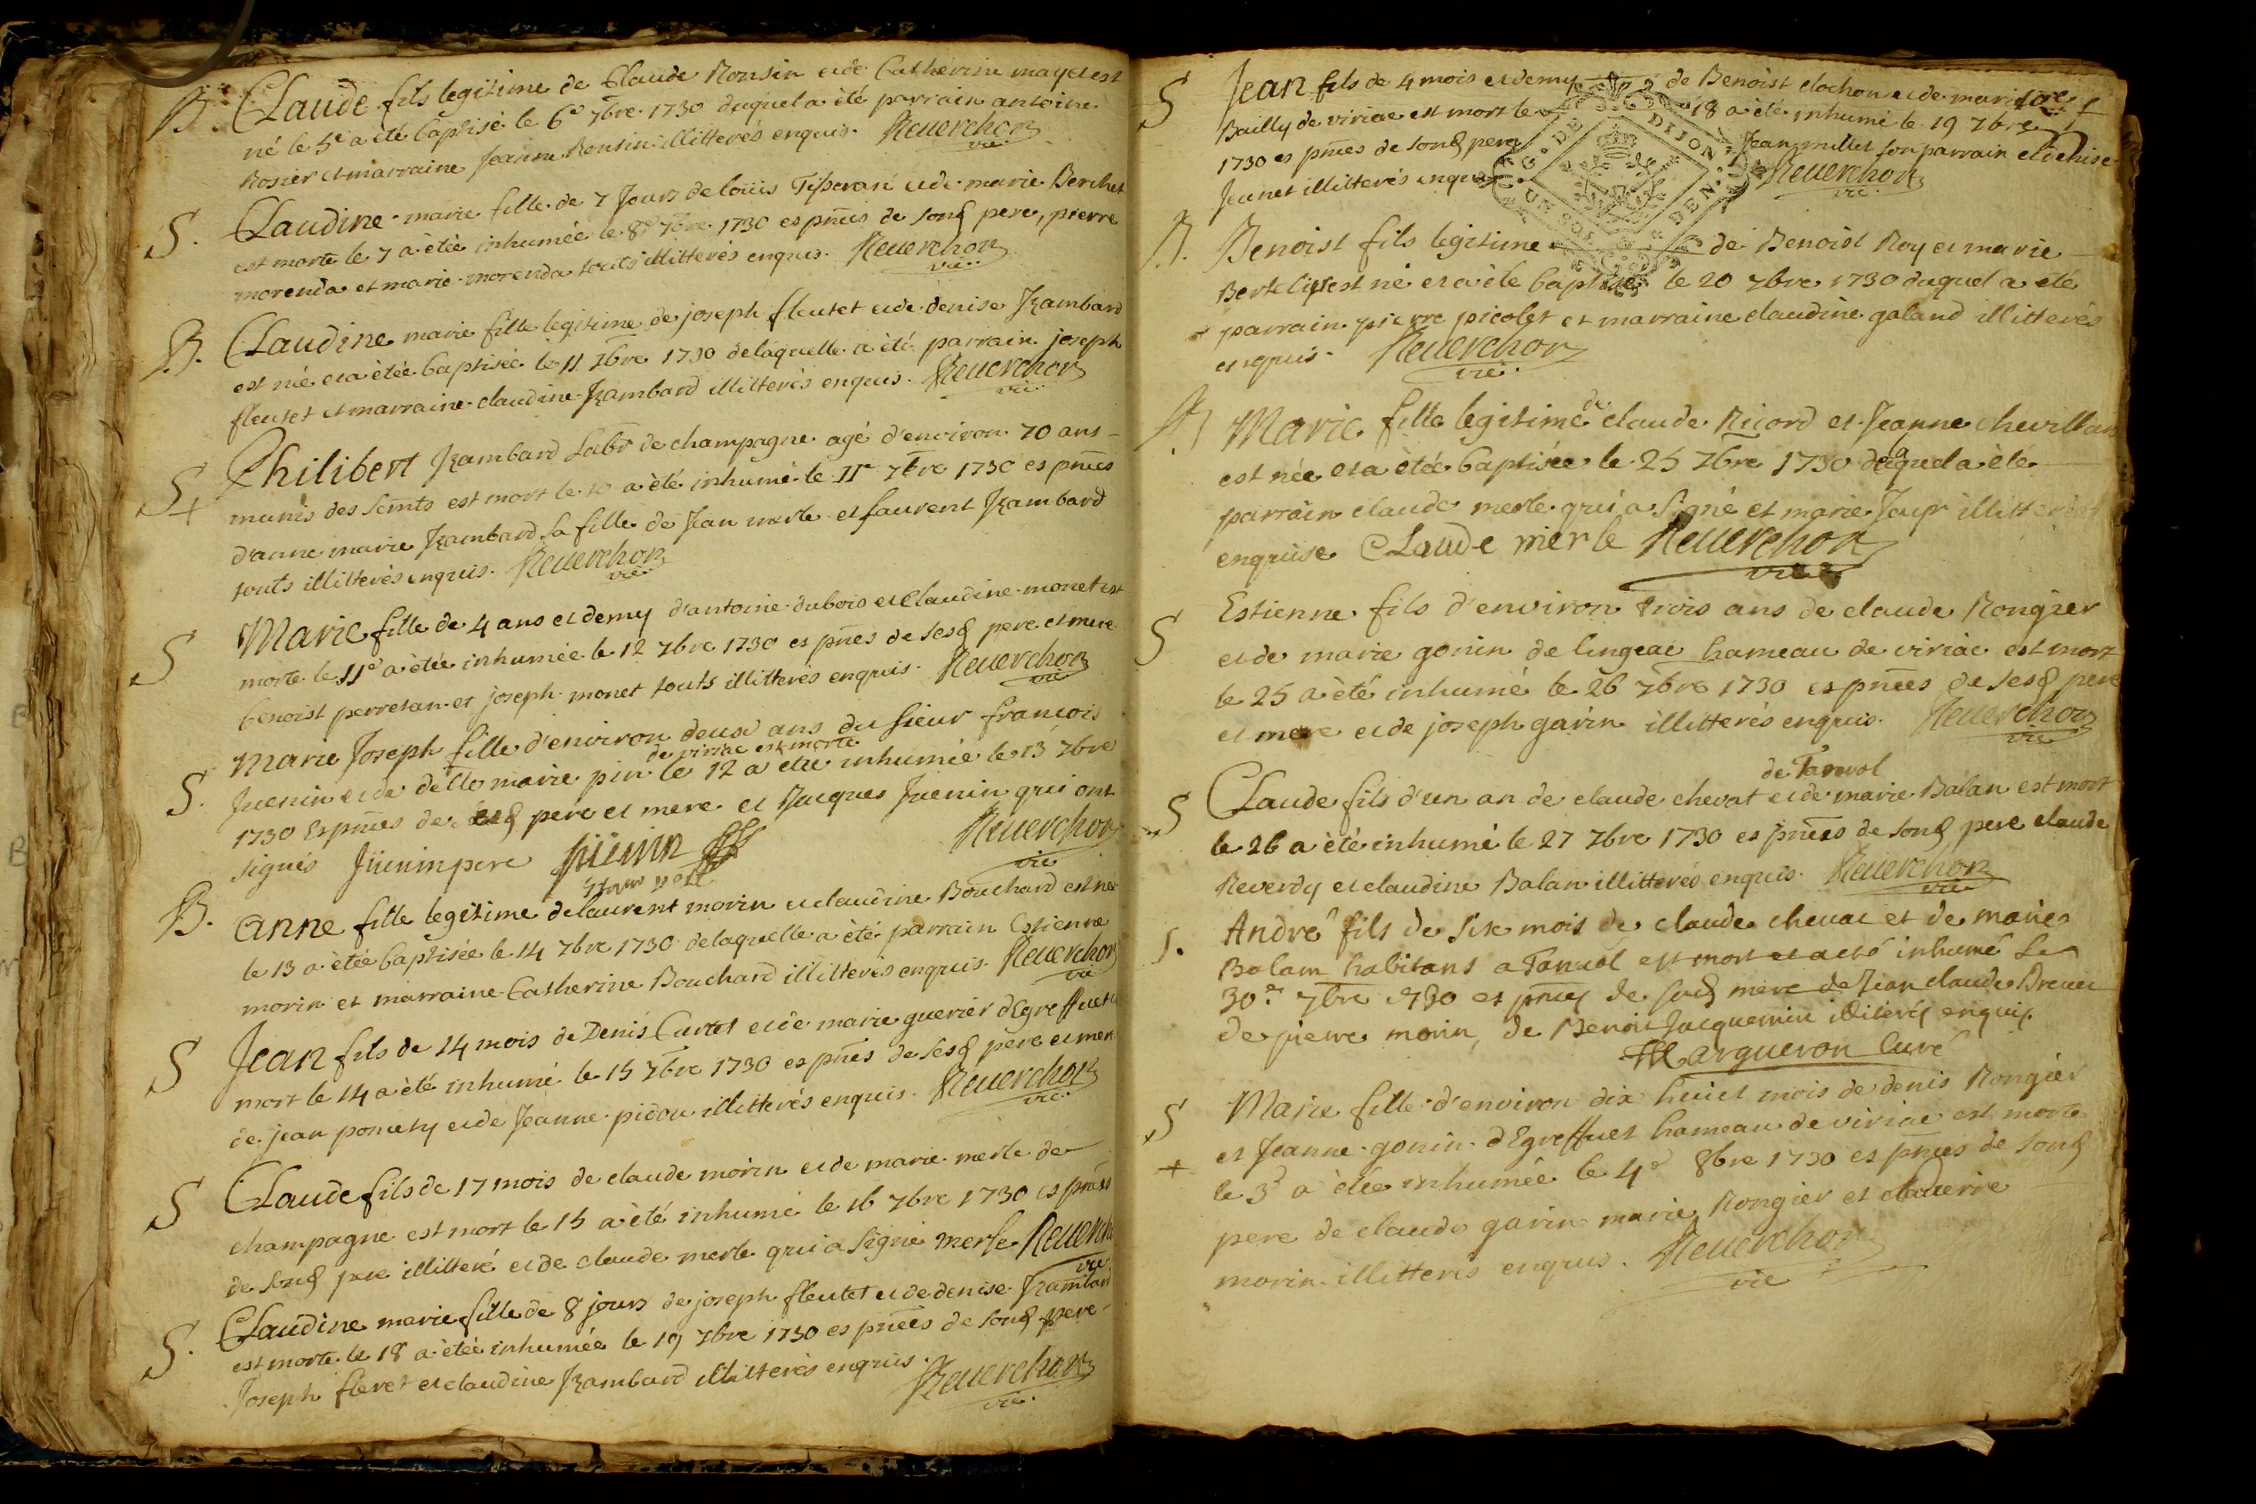 B. Claude fils legitime de Claude Ronsin et de Catherine mayet est
né le 5e a été baptisé le 6e 7bre 1730 duquel a été parrain antoine
Rosier et marraine Jeanne Ronsin illitterés enquis. Reuerchon
vic.
S. Claudine marie fille de 7 Jours de loüis Tisserand et de marie Berchet
est morte le 7 a étée inhumée le 8e 7bre 1730 es pnces de sond pere, pierre
morenda et marie morenda touts illitterés enquis. Reuerchon
vic.
B. Claudine marie fille legitime de joseph fleutet et de denise Rambard
est née et a étée baptisée le 11 7bre 1730 de laquelle a été parrain joseph
fleutet et marraine claudine Rambard illitterés enquis. Reuerchon
vic.
S + Philibert Rambard Labr de champagne agé d'environ 70 ans
munis des scmts est mort le 10 a été inhumé le 11e 7bre 1730 es pnces
d'anne marie Rambard sa fille de Jean merle et laurent Rambard
touts illitterés enquis. Reuerchon
vic.
S Marie fille de 4 ans et demy d'antoine dubois et claudine monet est
morte le 11e a étée inhumée le 12 7bre 1730 es pnces de sesd pere et mere
benoist perretan et joseph monet touts illitterés enquis. Reuerchon
vic
S. Marie Joseph fille d'environ deux ans du sieur francois
de viriac est morte
Juenin et de delle marie pin le 12 a étée inhumée le 13 7bre
1730 Es pnces de sesd pere et mere et Jacques Juenin qui ont
signés Jüenin pere jüenin Reuerchon
vic
B. anne fille legitime de laurent morin et claudine Bouchard est née
le 13 a étée baptisée le 14 7bre 1730 de laquelle a été parrain Estienne
morin et marraine Catherine Bouchard illitterés enquis. Reuerchon
vic
S Jean fils de 14 mois de Denis Curtet et de marie guerier d'Egreffuet
mort le 14 a été inhumé le 15 7bre 1730 es pnces de sesd pere et mere
de jean poncety et de Jeanne pidou illitterés enquis. Reuerchon
vic.
S Claude fils de 17 mois de claude morin et de marie merle de
champagne est mort le 15 a été inhumé le 16 7bre 1730 es pnces
de sond pere illitteré et de claude merle qui a signé merle Reuerchon
vic
S. Claudine marie fille de 8 jours de joseph fleutet et de denise Rambard
est morte le 18 a étée inhumée le 19 7bre 1730 es pnces de sond pere
Joseph fleret et claudine Rambard illitterés enquis. Reuerchon
vic.
S Jean fils de 4 mois et demy de Benoist clochon et de marie
Bailly de viriac est mort le 18 a été inhumé le 19 7bre
1730 es pnces de sond pere Jean millet son parrain et denise
Jeunet illitterés enquis Reuerchon
vic.
G. DE DIJON
B. Benoist fils legitime de Benoist Roy et marie
est né et a été baptisé le 20 7bre 1730 duquel a été
parrain pierre picolet et marraine claudine galand illitterés
enquis. Reuerchon
vic.
B de
Marie fille legitime claude Ricord et Jeanne chevillard
est née et a étée baptisée le 25 7bre 1730 duquel a été
parrain claude merle qui a signé et marie illitterée
enquise Claude merle Reuerchon
vic
S Estienne fils d'environ trois ans de claude Rongier
et de marie gonin de lingeac hameau de viriac est mort
le 25 a été inhumé le 26 7bre 1730 es pnces de sesd pere
et mere et de joseph garin illitterés enquis. Reuerchon
vic
de Tanvol
S Claude fils d'un an de claude chevat et de marie Balan est mort
le 26 a été inhumé le 27 7bre 1730 es pnces de sond pere claude
Reverdy et claudine Balan illitterés enquis. Reuerchon
vic
S. André fils de six mois de claude chevat et de marie
Balam habitans a Tanvol est mort et a eté inhumé Le
30e 7bre 1730 es pnces de sad mere de Jean claude
de pierre morin, de Benoit Jacquemin illiterés enquis.
Margueron Curé
S + Marie fille d'environ dix huict mois de denis Rongier
et Jeanne gonin d'Egreffuet hameau de viriac est morte
le 3e a étée inhumée le 4e 8bre 1730 es pnces de sond
pere de claude garin marie Rongier et
morin illitterés enquis. Reuerchon
vic